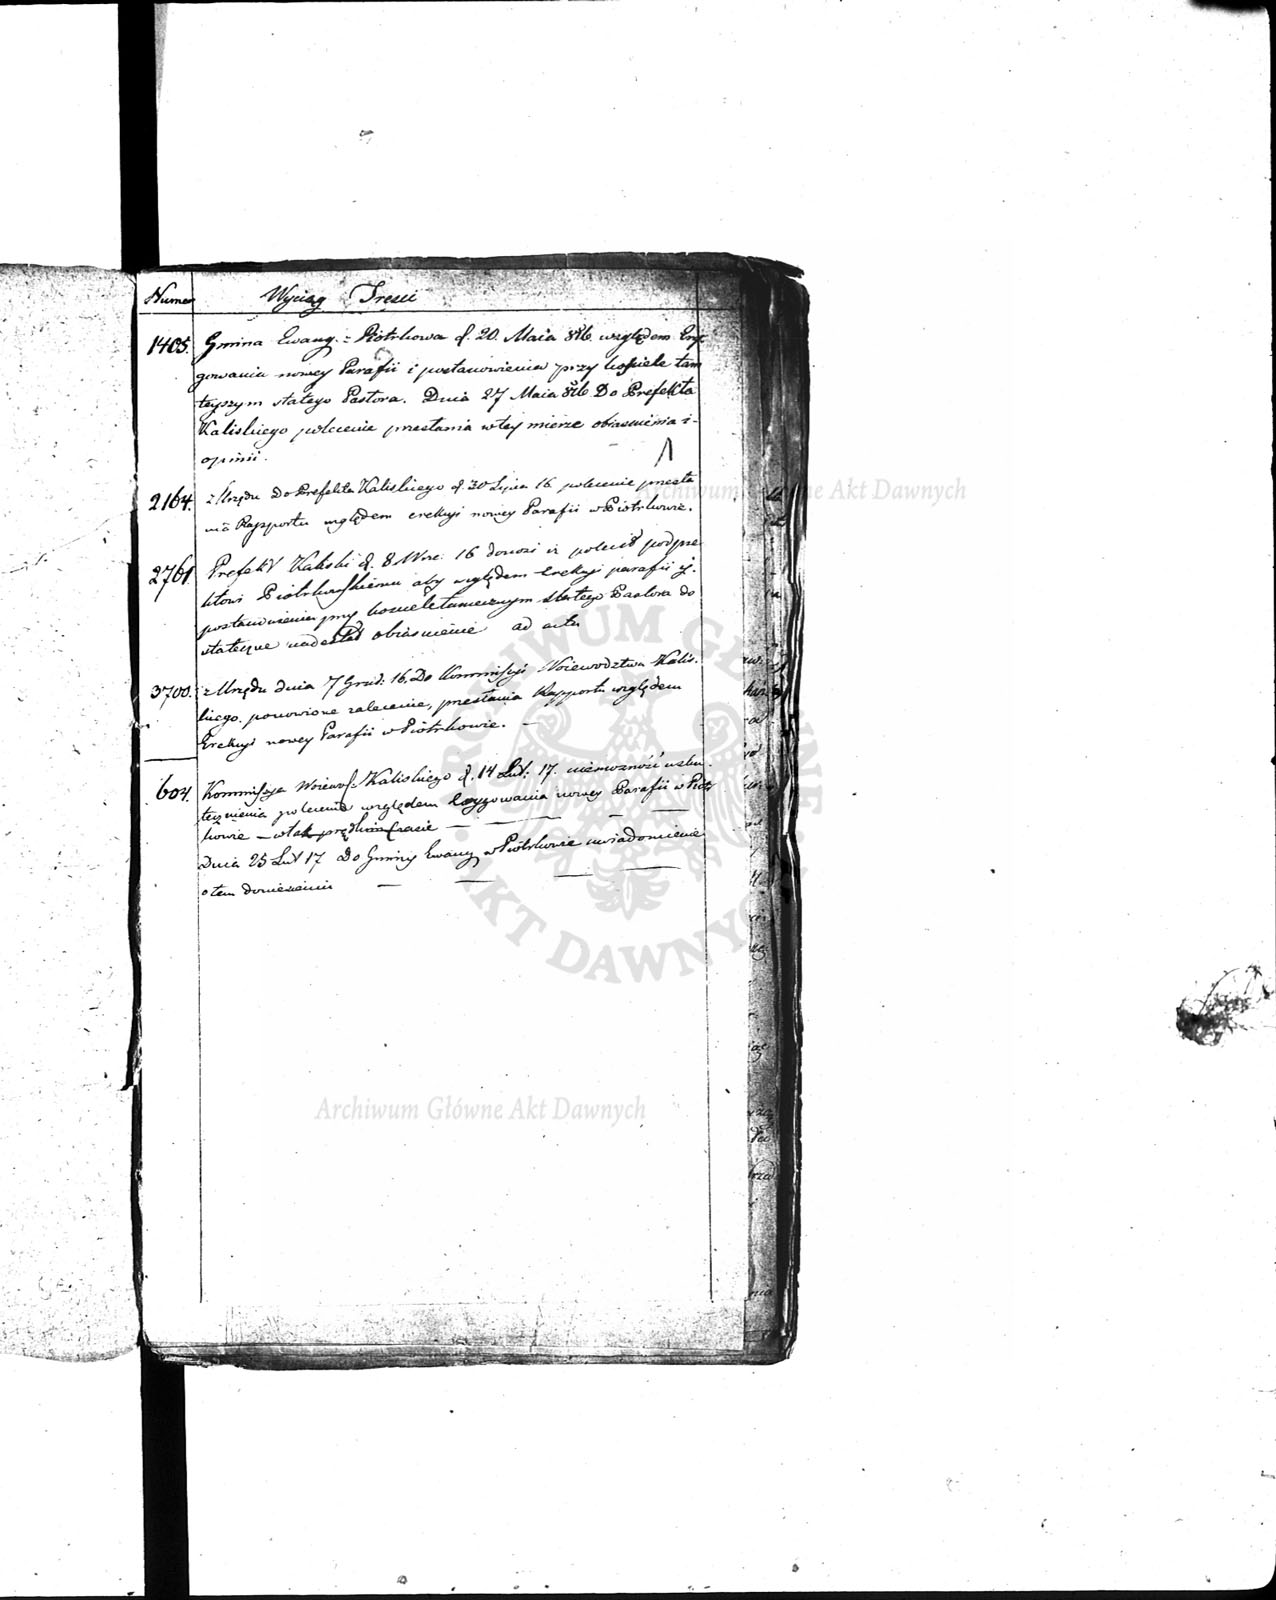 Numer Wyciąg Tresci
1405. Gmina Ewang. = Piotrkowa d. 20. Maia 816 względem Ery
gowania nowey Parafii i postanowienia przy kosciele tam
teyszym stałego Pastora. Dnia 27 Maia 816 Do Prefekta
Kaliskiego polecenie przesłania w tey mierze obiasnienia i
opinii.
2164. z Urzędu Do Prefekta Kaliskiego d. 30 Lipca 16 polecenie przesła
nia Rapportu względem erekcyi nowey Parafii w Piotrkowie.
2761. Prefekt Kaliski d. 8 Wrz: 16 donosi iż polecił podpre
fektowi Piotrkowskiemu aby względem erekcyi parafii y
postanowienia przy kosciele tamecznym stałego Pastora do
stateczne nadesłał obiasnienie ad acta
3700. z Urzędu dnia 7 Grud: 16. Do Kommissyi Woiewodztwa Kalis.
kiego. ponowione zalecenie, przesłania Rapportu względem
Erekcyi nowey Parafii w Piotrkowie. —
604. Kommissya Woiewod: Kaliskiego d. 14 Lut: 17. niemozność usku
tecznienia polecenia względem Erygowania nowey Parafii w Piotr
kowie — w tak prędkim czasie —
Dnia 25 Lut 17 Do Gminy Ewang w Piotrkowie uwiadomienie
o tem doniesieniu
Archiwum Główne Akt Dawnych
ARCHIWUM GŁÓWNE AKT DAWNYCH
Archiwum Główne Akt Dawnych